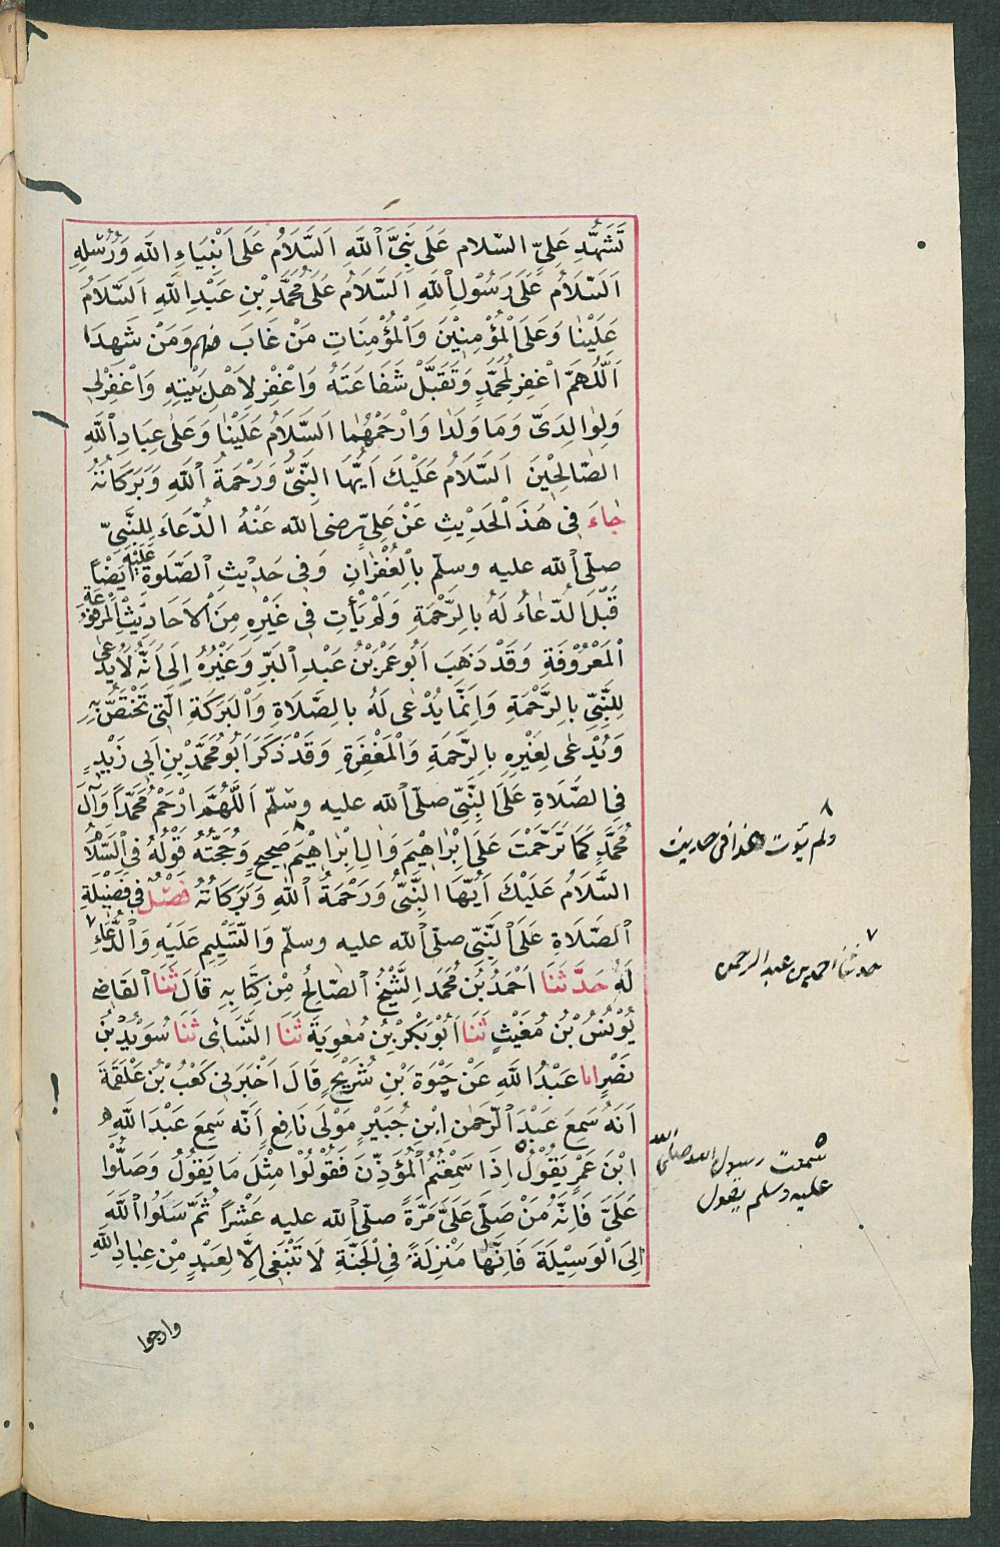 تَشَهُّدِ عَلِيٍّ السّلام عَلَى نَبِيِّ ٱللَّهِ اَلسَّلَامُ عَلَى اَنْبِيَاءِ اللَّهِ وَرُسُلِهِ
اَلسَّلَامُ عَلَى رَسُوْلِ ٱللَّهِ اَلسَّلَامُ عَلَى مُحَمَّدِ بْنِ عَبْدِ اللَّهِ اَلسَّلَامُ
عَلَيْنَا وَعَلَى ٱلْمُؤْمِنِيْنَ وَٱلْمُؤْمِنَاتِ مَنْ غَابَ منهم وَمَنْ شَهِدَ
اَللَّهُمَّ اغْفِرْ لِمُحَمَّدٍ وَتَقَبَّلْ شَفَاعَتَهُ وَاغْفِرْ لِاَهْلِ بَيْتِهِ وَاغْفِرْلِى
وَلِوَالِدَىَّ وَمَا وَلَدَا وَارْحَمْهُمَا اَلسَّلَامُ عَلَيْنَا وَعَلٰى عِبَادِ ٱللَّهِ
الصَّالِحِيْنَ اَلسَّلَامُ عَلَيْكَ اَيُّهَا النَّبِىُّ وَرَحْمَةُ ٱللَّهِ وَبَرَكَاتُهُ
جَاءَ فِى هَذَ الْحَدِيْثِ عَنْ عَلِيٍّ رضى الله عَنْهُ الدُّعَاءَ لِلنَّبِىِّ
صلّى ٱلله عليه وسلّم بِالْغُفْرَانِ وَفِى حَدِيْثِ الصَّلَوةِ عَلَيْهِ اَيْضًا
قَبْلَ الدُّعَاءُ لَهُ بِالرَّحْمَةِ وَلَمْ يَأْتِ فِى غَيْرِهِ مِنَ الْاَحَادِيْثِ الْمَرْفُوْعَةِ
اَلْمَعْرُوْفَةِ وَقَدْ ذَهَبَ اَبُو عَمْرِ بْنُ عَبْدِ الْبَرِّ وَغَيْرُهُ اِلَى اَنَّهُ لَايُدْعٰى
لِلنَّبِىِّ بِالرَّحْمَةِ وَاِنَّمَا يُدْعٰى لَهُ بِالصَّلَاةِ وَٱلْبَرَكَةِ الَّتِى تَخْتَصُّ بِهِ
وَيُدْعٰى لِغَيْرِهِ بِالرَّحْمَةِ وَٱلْمَغْفِرَةِ وَقَدْ ذَكَرَ اَبُو مُحَمَّدِ بْنِ اَبِى زَيْدٍ
فِى الصَّلَاةِ عَلَى النَّبِىِّ صلّى ٱلله عليه وسلّم اَللَّهُمَّ ارْحَمْ مُحَمَّدًا وَآلَ
مُحَمَّدٍ كَمَا تَرَحَّمْتَ عَلَى اِبْرٰاهِيْمَ وَاٰلِ اِبْرٰاهِيْمَ ٨ صَحِيحٍ وَحُجَّتُهُ قَوْلُهُ فِى السَّلَامِ
السَّلَامُ عَلَيْكَ اَيُّهَا النَّبِىُّ وَرَحْمَةُ ٱللَّهِ وَبَرَكَاتُهُ فَصْلٌ فِى فَضِيْلَةِ
ٱلصَّلَاةِ عَلَى النَّبِىِّ صلّى ٱلله عليه وسلّم وَالتَّسْلِيمِ عَلَيْهِ وَٱلدُّعَاءِ
لَهُ ٧ حَدَّثَنَا اَحْمَدُ بْنُ مُحَمَّدِ الشَّيْخُ الصَّالِحُ مِنْ كِتَابِهِ قَالَ ثَنَا الْقَاضِى
يُوْنُسُ بْنُ مُغِيْثٍ ثَنَا اَبُوْ بَكْرِ بْنِ مُعٰوِيَةَ ثَنَا النَّسَائِى ثَنَا سُوَيْدُ بْنُ
نَصْرٍ انا عَبْدُ اللَّهِ عَنْ حَيْوَةَ بْنِ شُرَيْحٍ قَالَ اَخْبَرَنِى كَعْبُ بْنُ عَلْقَمَةَ
اَنَّهُ سَمِعَ عَبْدَ الرَّحْمٰنِ اِبْنِ جُبَيْرٍ مَوْلَى نَافِعٍ اَنَّهُ سَمِعَ عَبْدَ اللَّهِ
ابْنَ عَمْرٍ يَقُوْلُ ٥ اِذَا سَمِعْتُمُ ٱلْمُؤَذِّنَ فَقُوْلُوْا مِثْلَ مَا يَقُوْلُ وَصَلُّوْا
عَلَىَّ فَاِنَّهُ مَنْ صَلَّى عَلَىَّ مَرَّةً صلّى ٱلله عليه عَشْرًا ثُمَّ سَلُوا ٱللَّهَ
اِلَى الْوَسِيْلَةَ فَاِنَّهَا مَنْزِلَةً فِى الْجَنَّةِ لَا تَنْبَغِى اِلَّا لِعَبْدٍ مِنْ عِبَادِ اللَّهِ
وارجوا
٨
ولم يؤت هذا فى حديث
٧
حدثنا احمد بن عبد الرحمن
٥
سمعت رسول الله صلى الله
عليه وسلم يقول